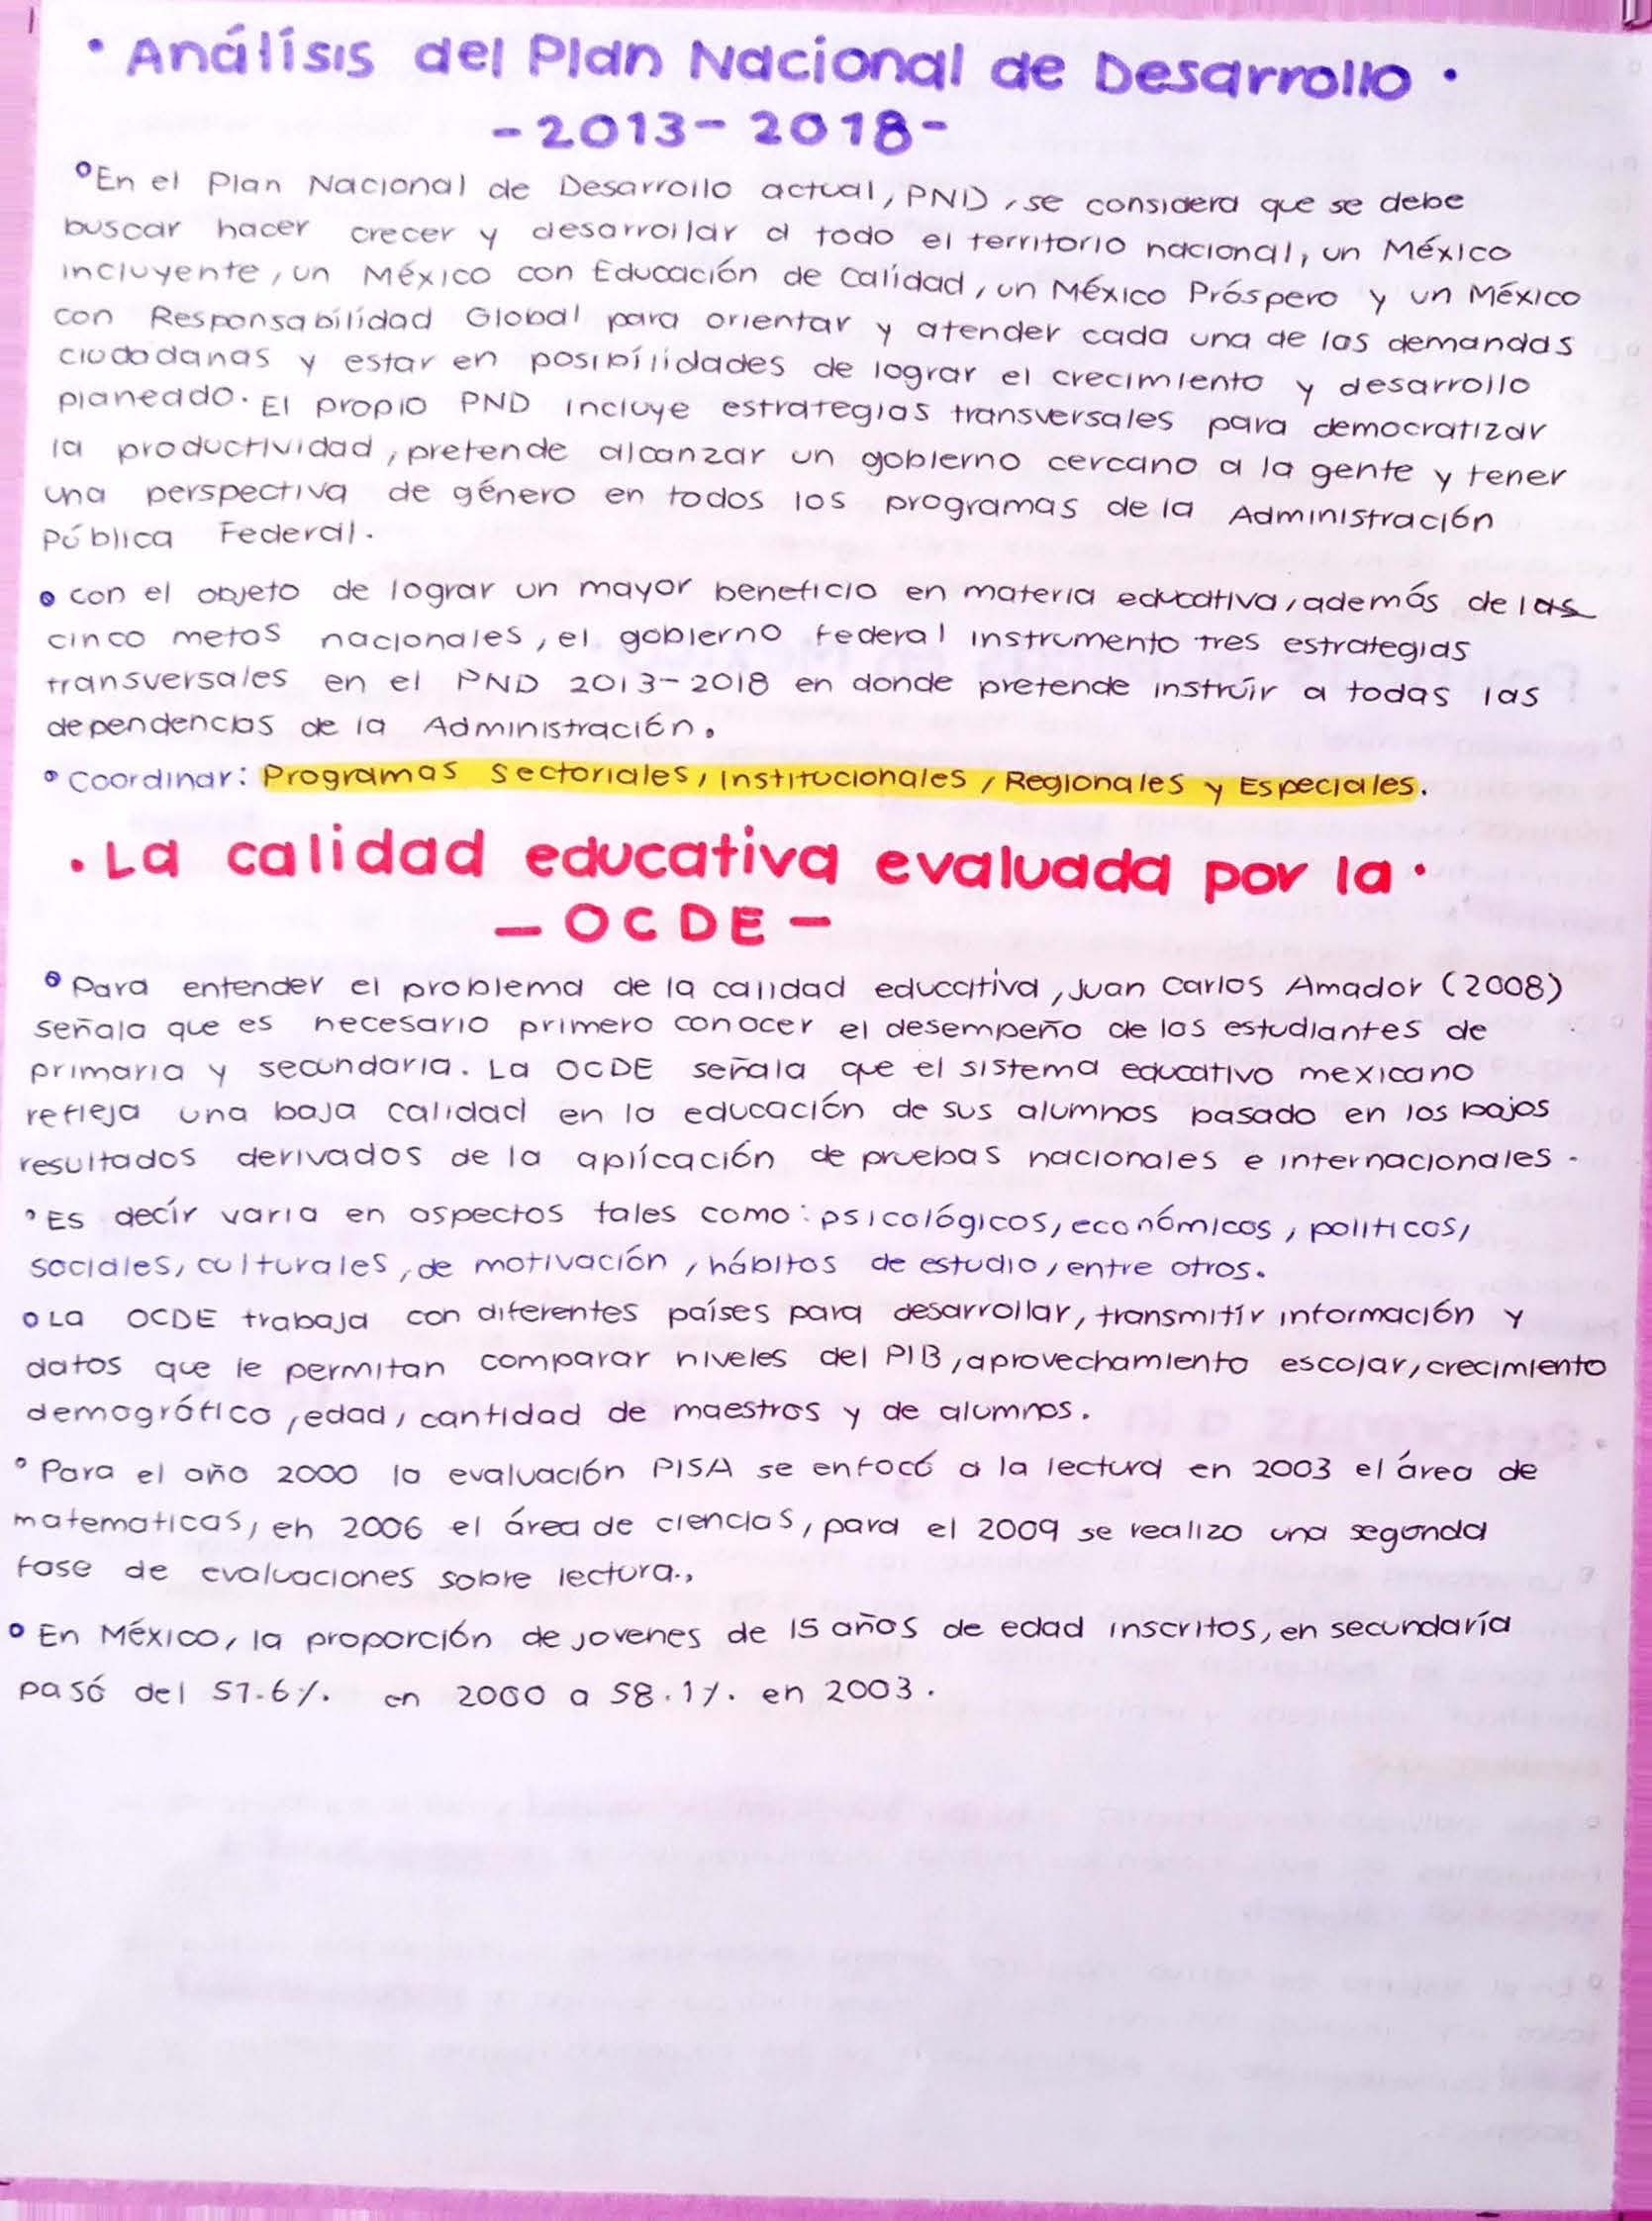 • Análisis del Plan Nacional de Desarrollo •
- 2013 - 2018 -
° En el Plan Nacional de Desarrollo actual, PND, se considera que se debe
buscar hacer crecer y desarrollar a todo el territorio nacional, un México
incluyente, un México con Educación de Calidad, un México Próspero y un México
con Responsabilidad Global para orientar y atender cada una de las demandas
ciudadanas y estar en posibilidades de lograr el crecimiento y desarrollo
planeado. El propio PND incluye estrategias transversales para democratizar
la productividad, pretende alcanzar un gobierno cercano a la gente y tener
una perspectiva de género en todos los programas de la Administración
Pública Federal.
° con el objeto de lograr un mayor beneficio en materia educativa, además de las
cinco metas nacionales, el gobierno federal instrumento tres estrategias
transversales en el PND 2013-2018 en donde pretende instruir a todas las
dependencias de la Administración.
° Coordinar: Programas Sectoriales, Institucionales, Regionales y Especiales.
• La calidad educativa evaluada por la •
- OCDE -
° Para entender el problema de la calidad educativa, Juan Carlos Amador (2008)
señala que es necesario primero conocer el desempeño de los estudiantes de
primaria y secundaria. La OCDE señala que el sistema educativo mexicano
refleja una baja calidad en la educación de sus alumnos basado en los bajos
resultados derivados de la aplicación de pruebas nacionales e internacionales.
° Es decir varia en aspectos tales como: psicológicos, económicos, politicos,
sociales, culturales, de motivación, hábitos de estudio, entre otros.
° La OCDE trabaja con diferentes países para desarrollar, transmitir información y
datos que le permitan comparar niveles del PIB, aprovechamiento escolar, crecimiento
demográfico, edad, cantidad de maestros y de alumnos.
° Para el año 2000 la evaluación PISA se enfocó a la lectura en 2003 el área de
matematicas, en 2006 el área de ciencias, para el 2009 se realizo una segunda
fase de evaluaciones sobre lectura.,
° En México, la proporción de jovenes de 15 años de edad inscritos, en secundaria
pasó del 51.6%. en 2000 a 58.1%. en 2003.